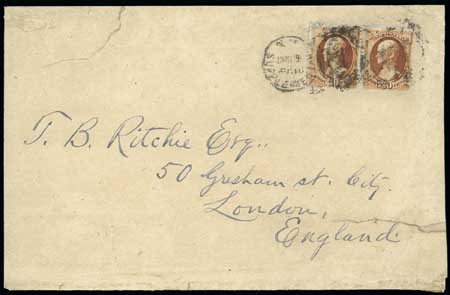 T. B. Ritchie Esq.
50 Gresham st. City.
London,
England.